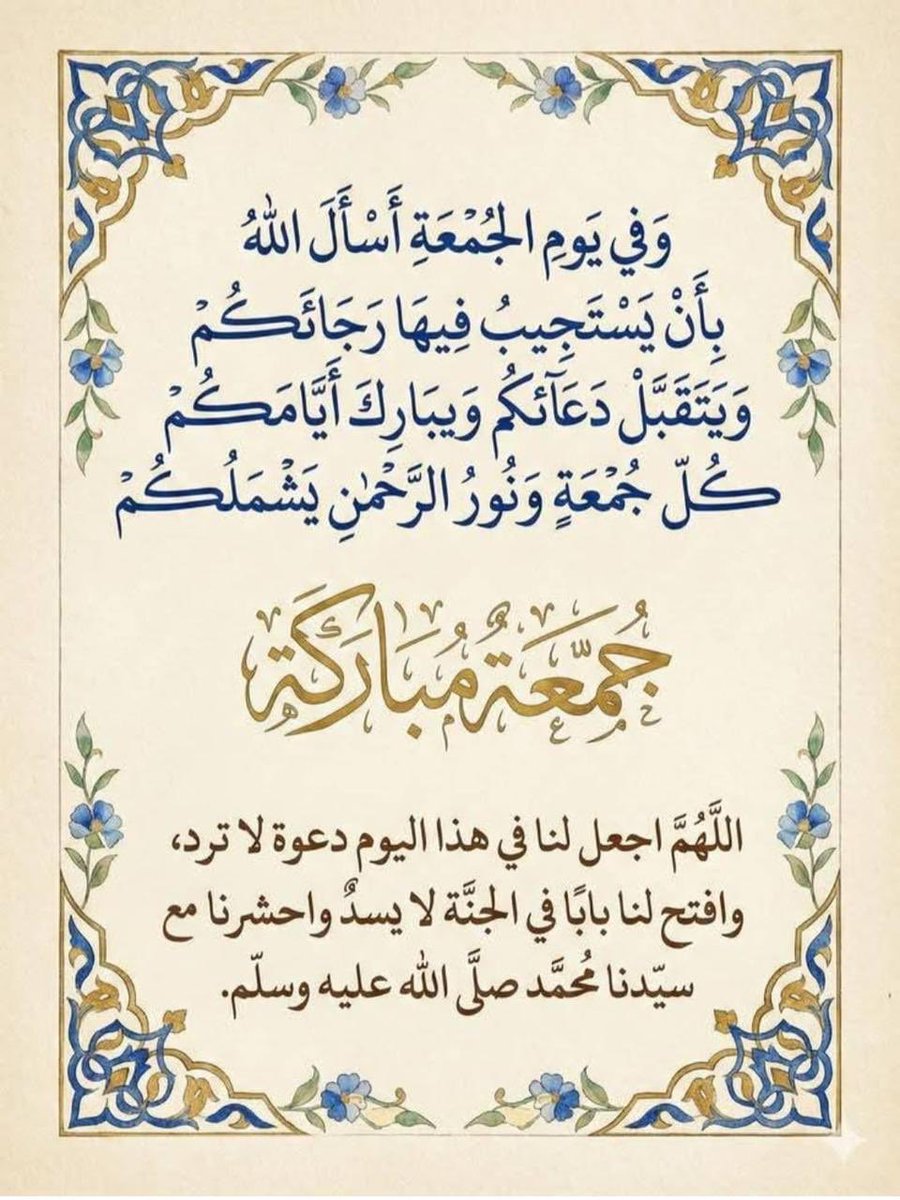 وَفي يَومِ الجُمْعَةِ أَسْأَلَ اللهُ
بِأَنْ يَسْتَجِيبُ فِيهَا رَجَائَكُمْ
وَيَتَقَبَّلْ دَعَآئكُم وَيبَارِكَ أَيَّامَكُمْ
كُلّ جُمْعَةٍ وَنُورُ الرَّحْمٰنِ يَشْمَلُكُمْ
جُمّعَةٌ مُبَارَكَة
اللَّهُمَّ اجعل لنا في هذا اليوم دعوة لا ترد،
وافتح لنا بابًا في الجنَّة لا يسدٌ واحشرنا مع
سيّدنا مُحمَّد صلَّى الله عليه وسلّم.